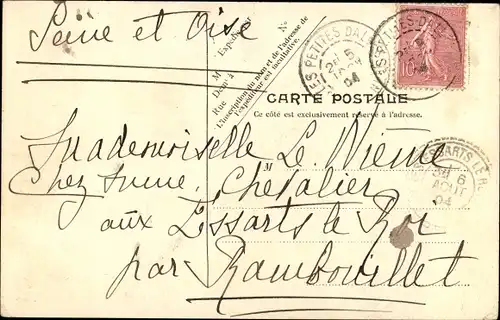 Seine et Oise
N°
M
Expédi
Dem à
Rue
L'inscription du nom et de l'adresse de
l'expéditeur est facultative.
LES PETITES DAL
5
04
10
CARTE POSTALE
Ce côté est exclusivement réservé à l'adresse.
M
Mademoiselle Le
Chez Mme Chevalier
aux Essarts le Roi
par Rambouillet
ESSARTS LE R
6
AOUT
04